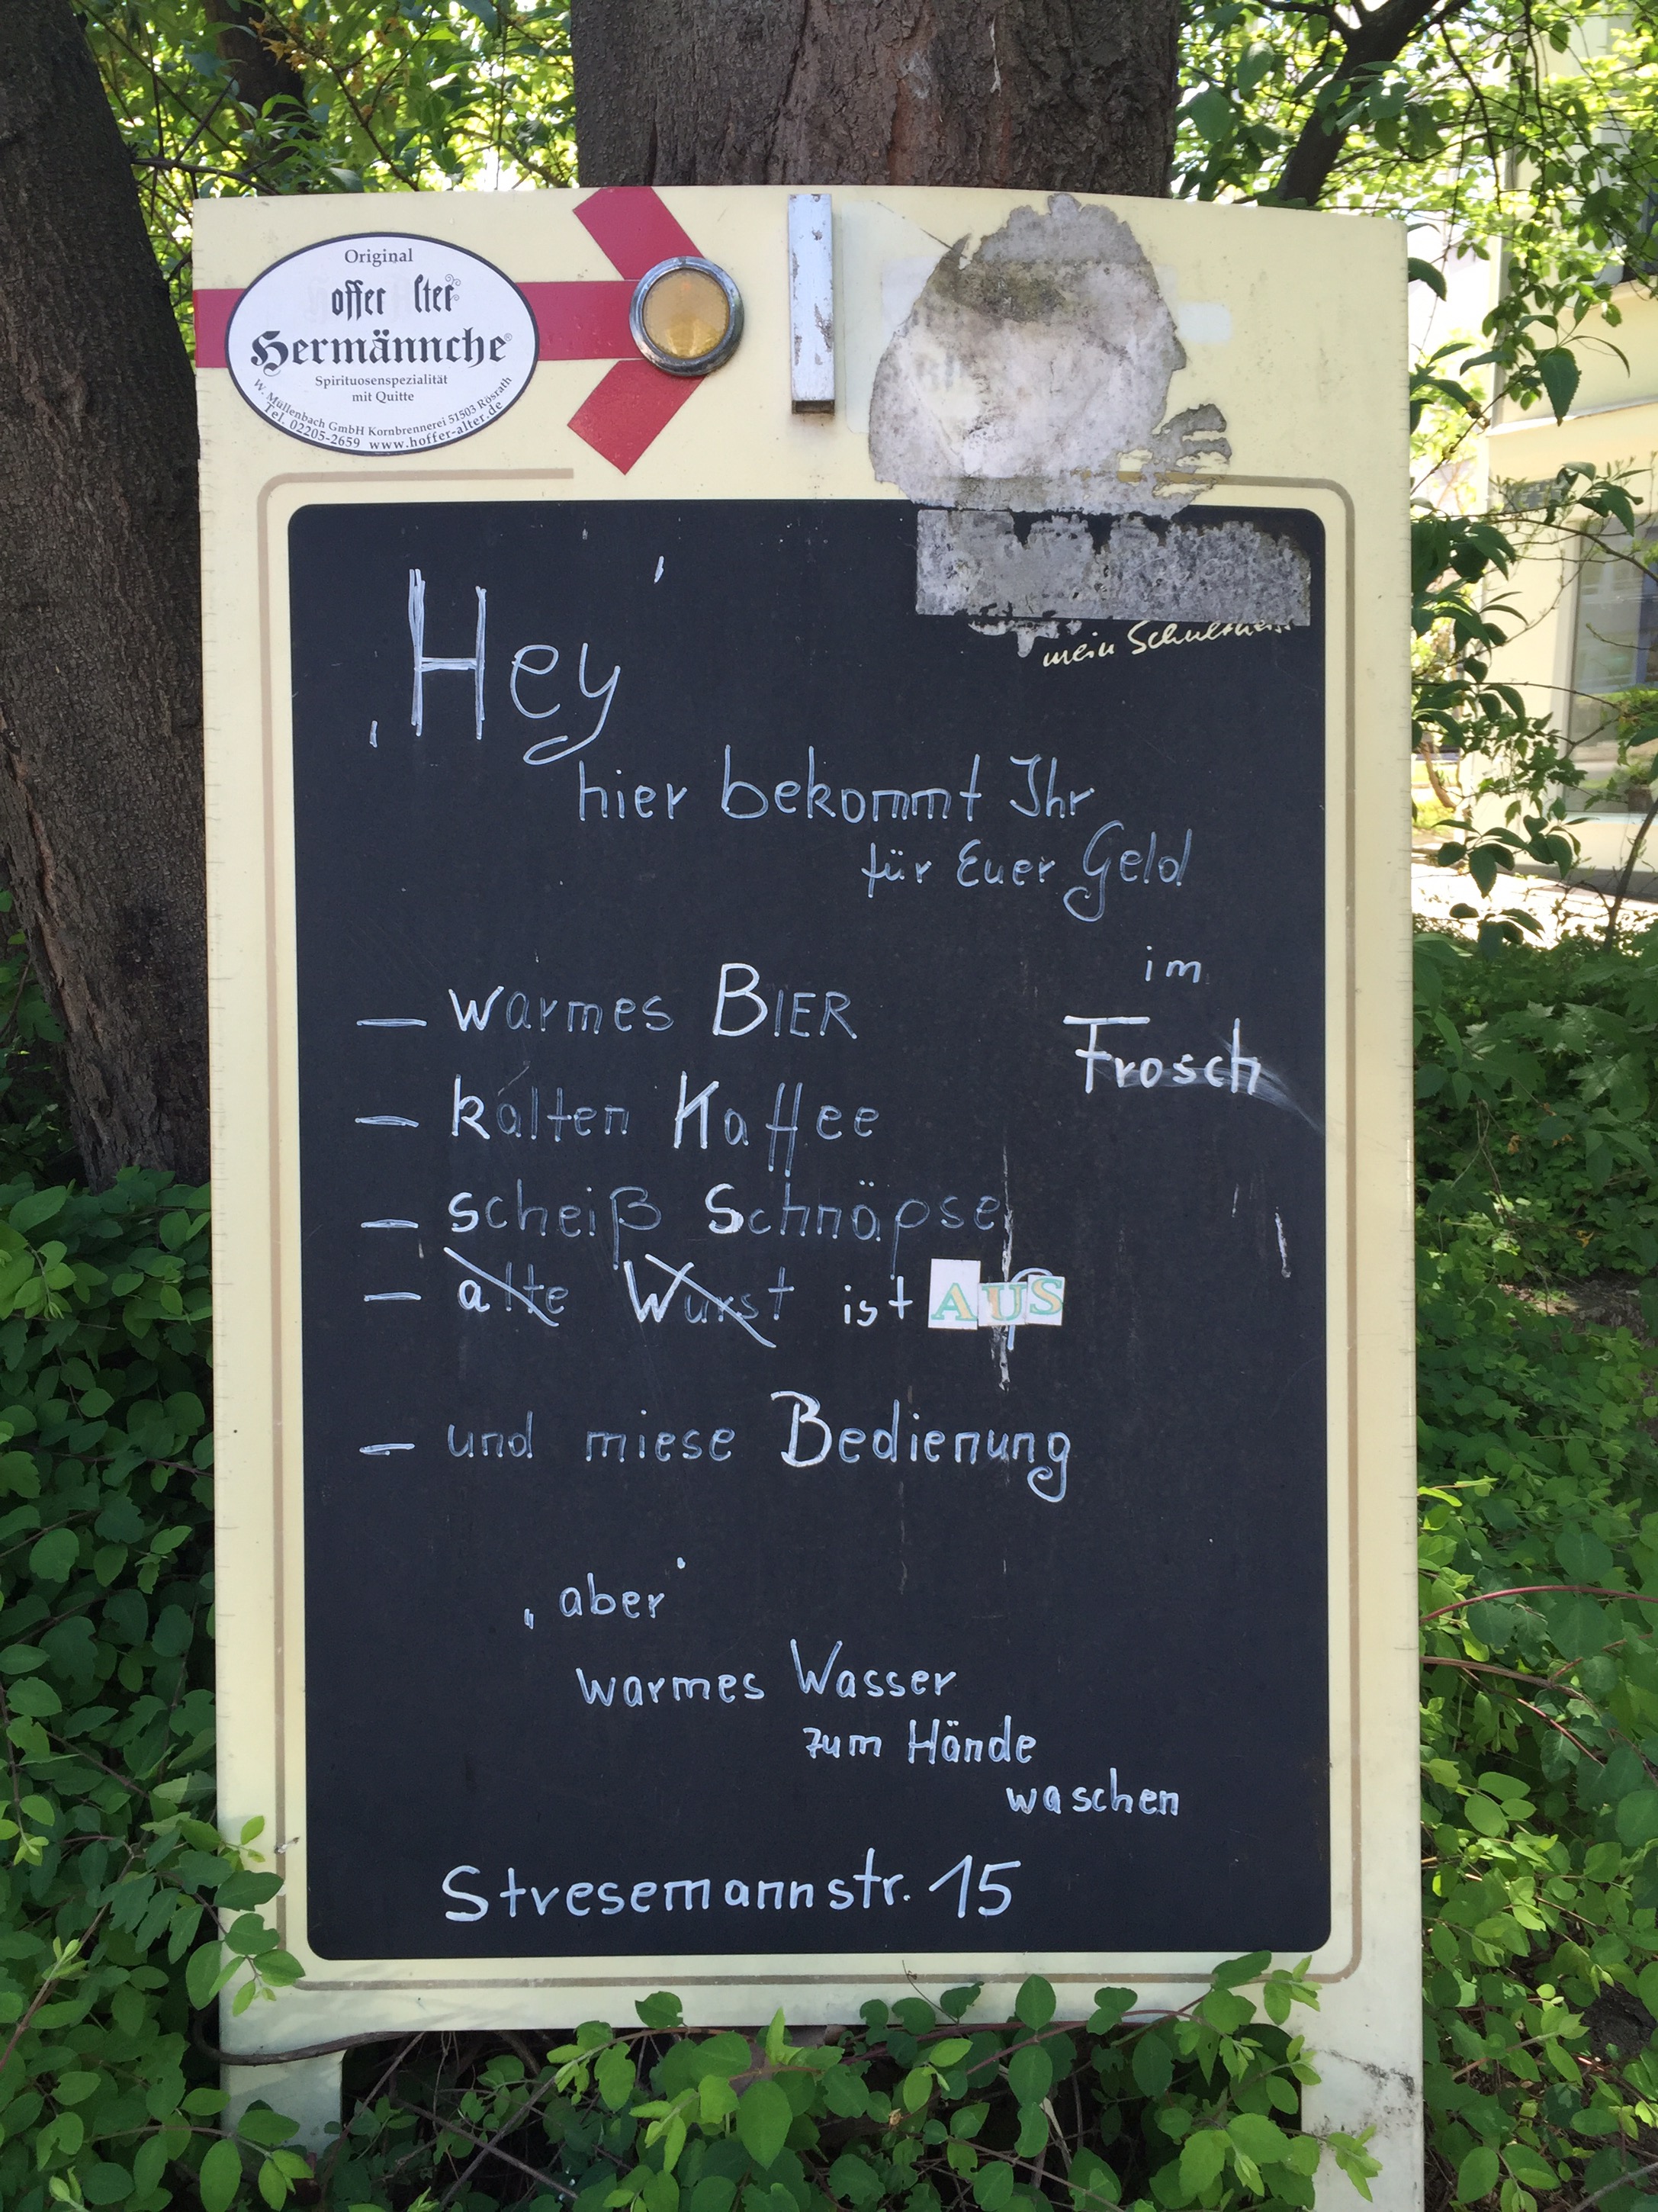 Original
offer lter
Hermännche®
Spirituosenspezialität
mit Quitte
W. Müllenbach GmbH Kornbrennerei 51503 Rösrath
Tel. 02205-2659 www.hoffer-alter.de
mein Schultheiss
"Hey"
hier bekommt Ihr
für Euer Geld
im
Frosch
– warmes BIER
– kalten Kaffee
– scheiß Schnäpse
– alte Wurst ist AUS
– und miese Bedienung
"aber"
warmes Wasser
zum Hände
waschen
Stresemannstr. 15